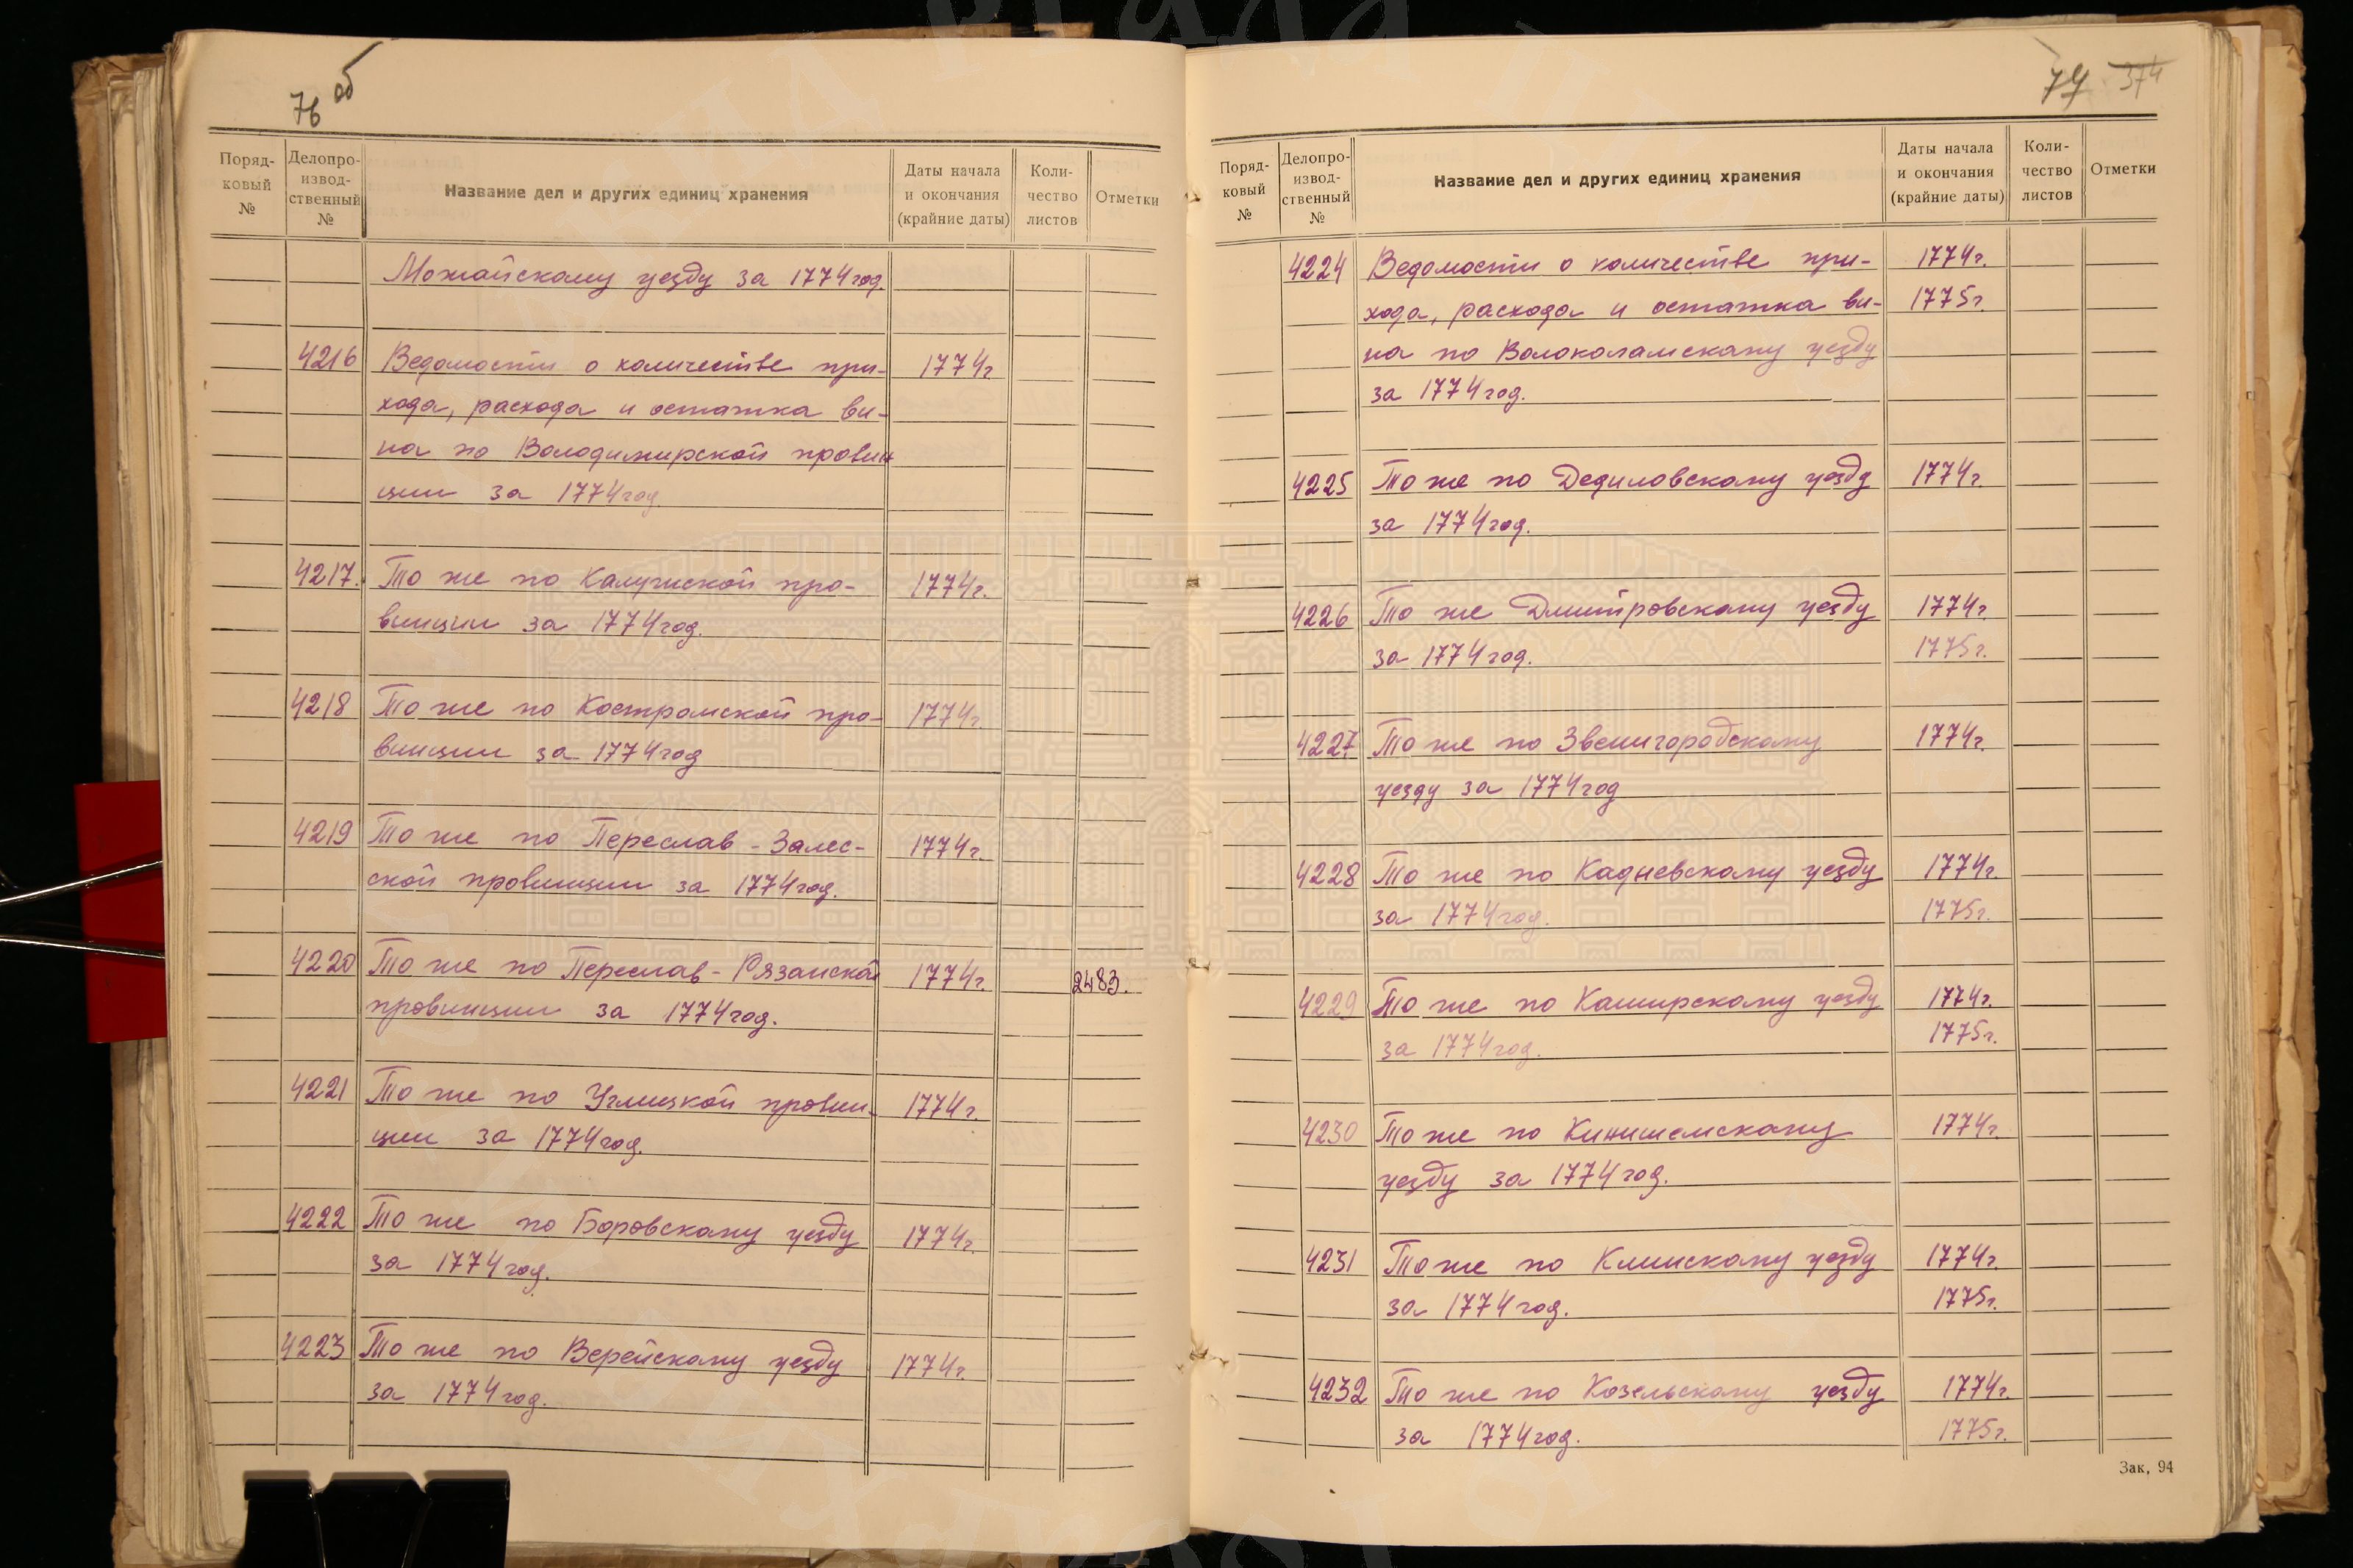 76 об
Поряд-
ковый
№
Делопро-
извод-
ственный
№
Название дел и других единиц хранения
Даты начала
и окончания
(крайние даты)
Коли-
чество
листов
Отметки
Можайскому уезду за 1774 год.
4216 Ведомости о количестве при- 1774 г
хода, расхода и остатка ви-
на по Володимирской провин
ции за 1774 год.
4217. То же по Калужской про- 1774 г.
винции за 1774 год.
4218 То же по Костромской про- 1774 г.
винции за 1774 год
4219 То же по Переслав-Залес- 1774 г.
ской провинции за 1774 год.
4220 То же по Переслав-Рязанской 1774 г. 2483.
провинции за 1774 год.
4221 То же по Углицкой провин- 1774 г.
ции за 1774 год.
4222 То же по Боровскому уезду 1774 г.
за 1774 год.
4223 То же по Верейскому уезду 1774 г.
за 1774 год.
77 374
Поряд-
ковый
№
Делопро-
извод-
ственный
№
Название дел и других единиц хранения
Даты начала
и окончания
(крайние даты)
Коли-
чество
листов
Отметки
4224 Ведомости о количестве при- 1774 г.
хода, расхода и остатка ви- 1775 г.
на по Волоколамскому уезду
за 1774 год.
4225 То же по Дедиловскому уезду 1774 г.
за 1774 год.
4226 То же Дмитровскому уезду 1774 г.
за 1774 год. 1775 г.
4227 То же по Звенигородскому 1774 г.
уезду за 1774 год
4228 То же по Кадневскому уезду 1774 г.
за 1774 год. 1775 г.
4229 То же по Каширскому уезду 1774 г.
за 1774 год. 1775 г.
4230 То же по Кинишемскому 1774 г.
уезду за 1774 год.
4231 То же по Клинскому уезду 1774 г.
за 1774 год. 1775 г.
4232 То же по Козельскому уезду 1774 г.
за 1774 год. 1775 г.
Зак, 94